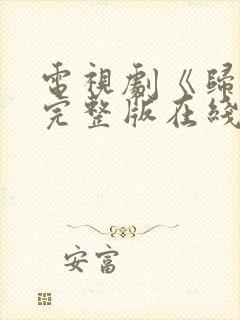 電視劇《歸
完整版在綫
安富